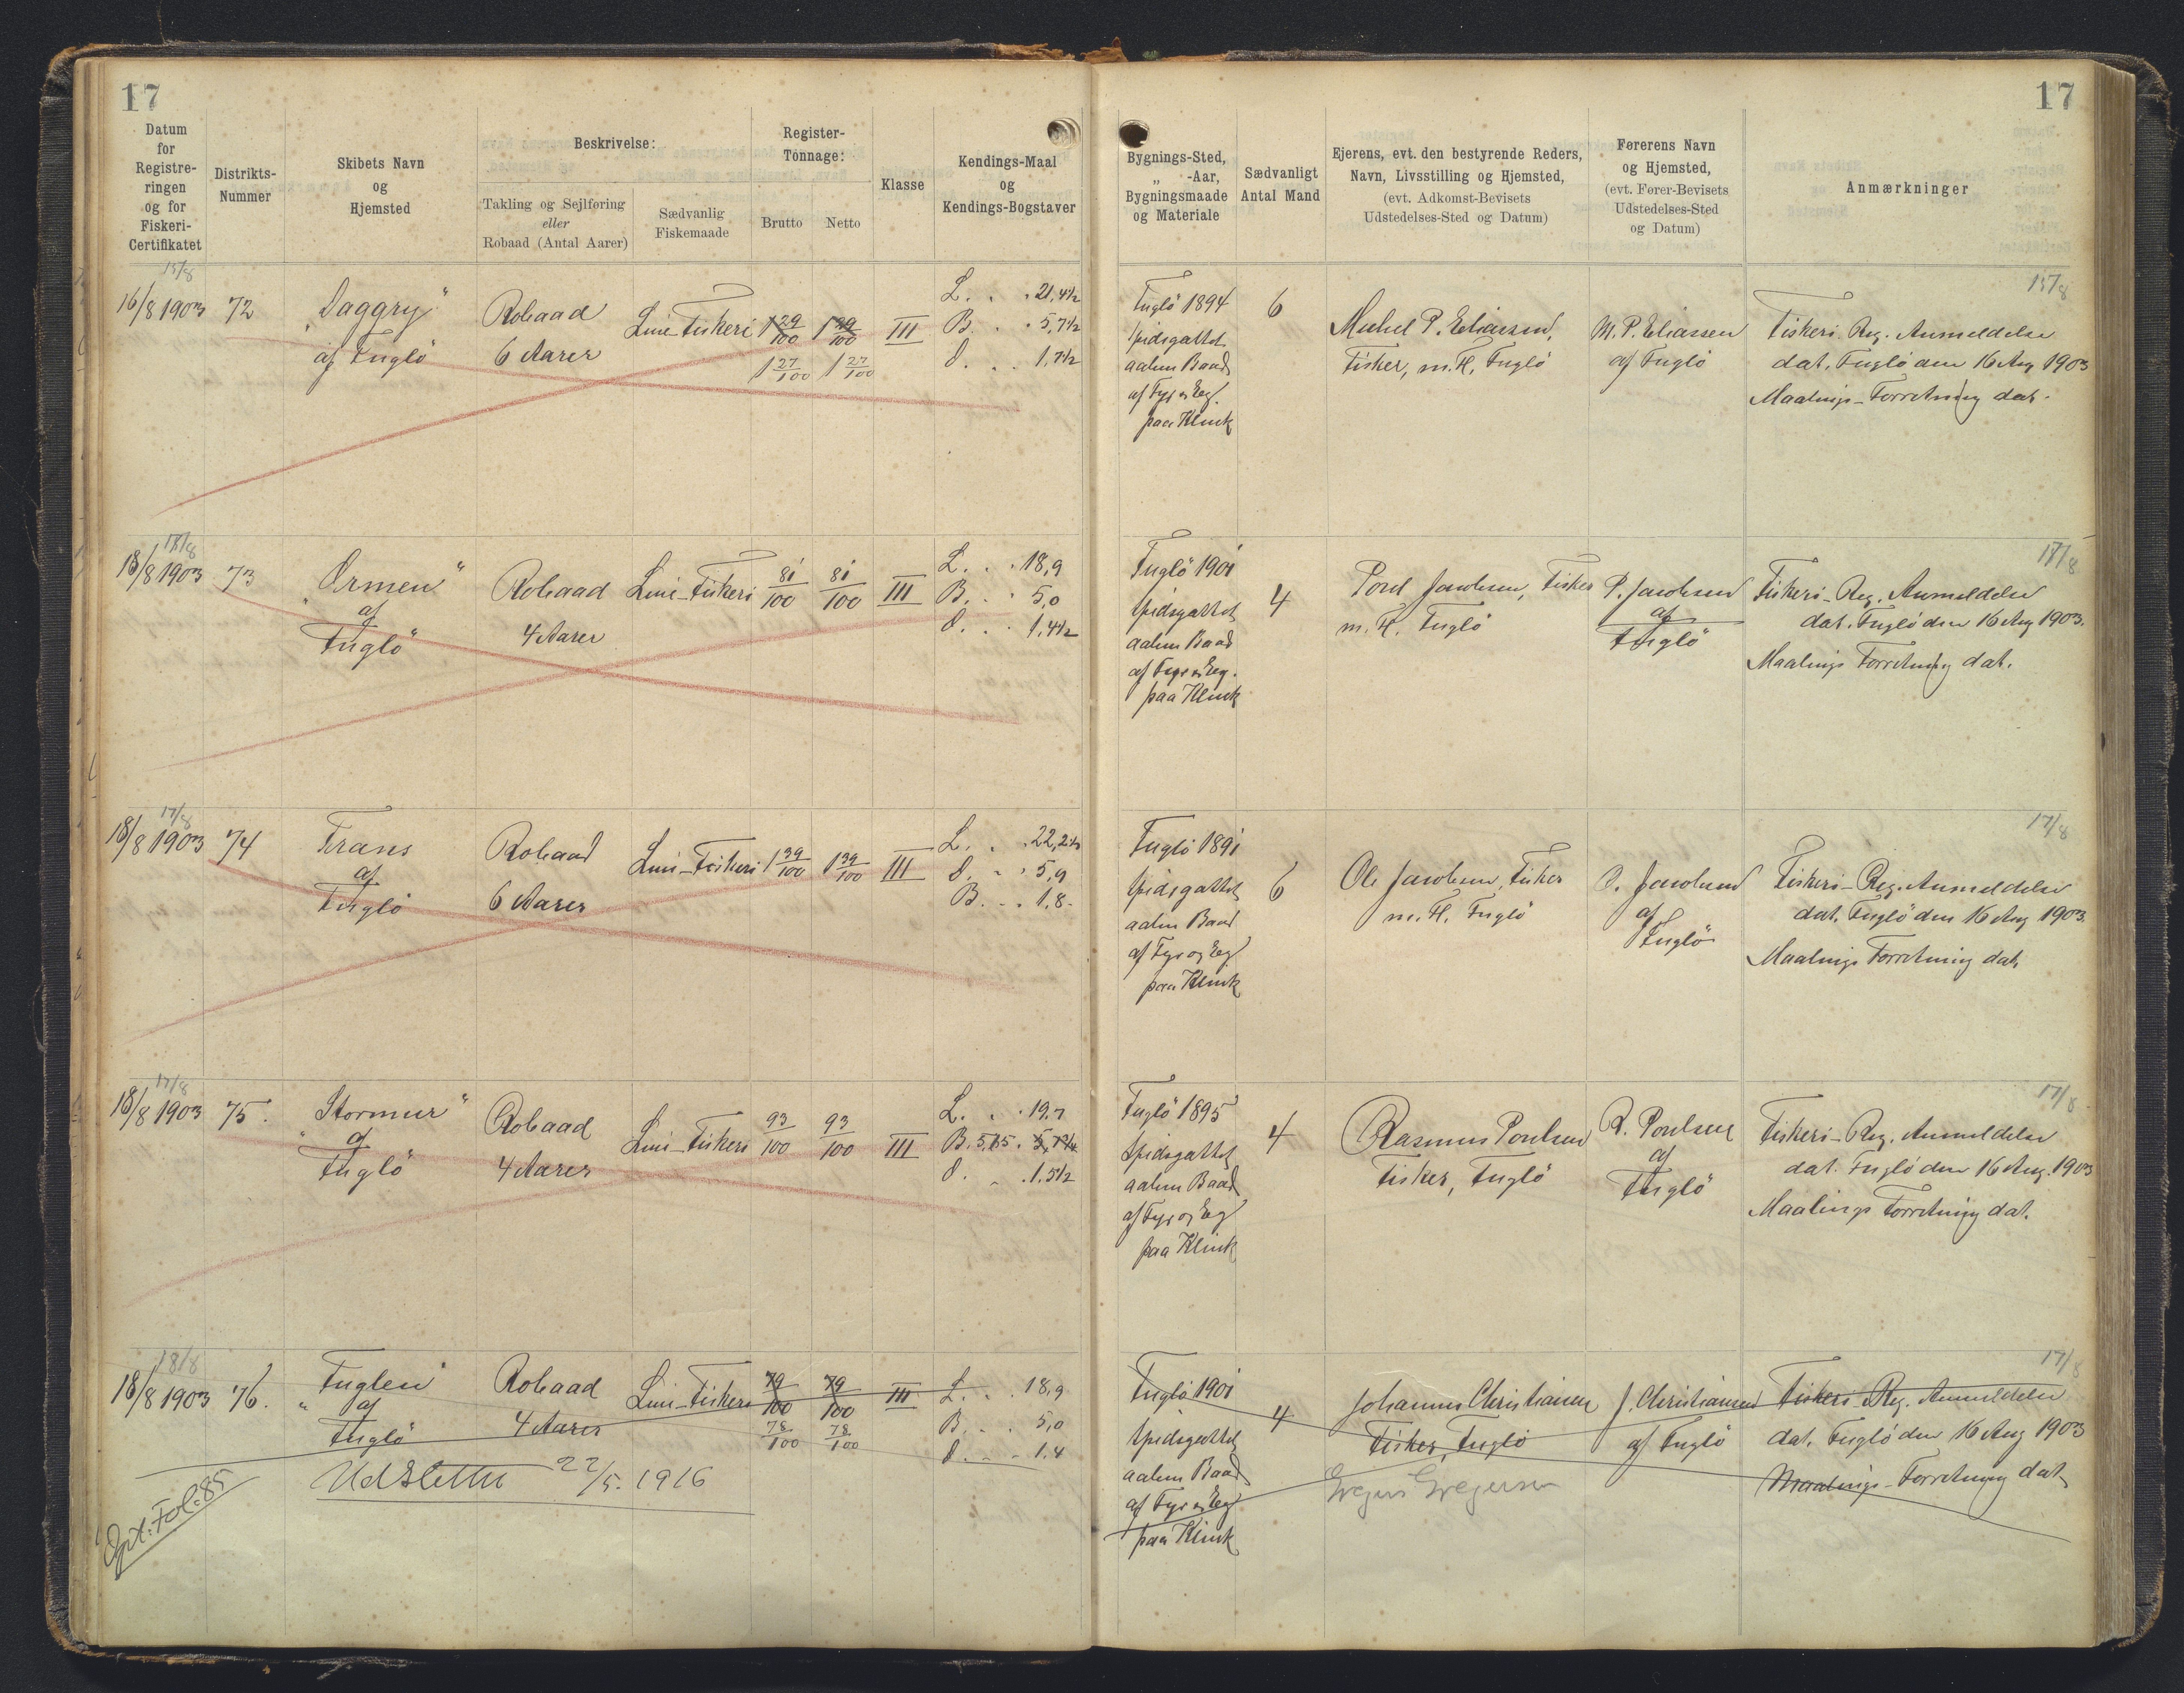 17
17
Datum
for
Registre-
ringen
og for
Fiskeri-
Certifikatet
Distrikts-
Nummer
Skibets Navn
og
Hjemsted
Beskrivelse:
Takling og Sejlføring
eller
Robaad (Antal Aarer)
Sædvanlig
Fiskemaade
Register-
Tonnage:
Brutto
Netto
Klasse
Kendings-Maal
og
Kendings-Bogstaver
Bygnings-Sted,
„ -Aar,
Bygningsmaade
og Materiale
Sædvanligt
Antal Mand
Ejerens, evt. den bestyrende Reders,
Navn, Livsstilling og Hjemsted,
(evt. Adkomst-Bevisets
Udstedelses-Sted og Datum)
Førerens Navn
og Hjemsted,
(evt. Fører-Bevisets
Udstedelses-Sted
og Datum)
Anmærkninger
15/8
16/8 1903
72
„Daggry"
af Fuglö
Robaad
6 Aarer
Line-Fiskeri
1 29/100
1 29/100
1 27/100
1 27/100
III
L. . . 21,4½
B. . . 5,7½
d. . . 1,7½
Fuglö 1894
Spidsgattet
aaben Baad
af Fyr og Eg.
paa Klink
6
Michel P. Eliassen,
Fisker, m. H. Fuglö
M. P. Eliassen
af Fuglö
15/8
Fiskeri-Reg. Anmeldelse
dat. Fuglö den 16 Aug 1903
Maalings-Forretning dat.
17/8
18/8 1903
73
„Ormen"
af
Fuglö
Robaad
4 Aarer
Line-Fiskeri
81/100
81/100
III
L. . . 18,9
B. . . 5,0
d. . . 1,4½
Fuglö 1901
Spidsgattet
aaben Baad
af Fyr og Eg.
paa Klink
4
Poul Jacobsen, Fisker
m. H. Fuglö
P. Jacobsen
af
Fuglö
17/8
Fiskeri-Reg. Anmeldelse
dat. Fuglö den 16 Aug 1903.
Maalings Forretning dat.
17/8
18/8 1903
74
Frans
af
Fuglö
Robaad
6 Aarer
Line-Fiskeri
1 39/100
1 39/100
III
L. . . 22,2½
d. . . 5,9
B. . . 1,8
Fuglö 1891
Spidsgattet
aaben Baad
af Fyr og Eg
paa Klink
6
Ole Jacobsen, Fisker
m. H. Fuglö
O. Jacobsen
af
Fuglö
17/8
Fiskeri-Reg. Anmeldelse
dat. Fuglö den 16 Aug 1903.
Maalings Forretning dat.
17/8
18/8 1903
75.
„Stormur"
af
Fuglö
Robaad
4 Aarer
Line-Fiskeri
93/100
93/100
III
L. . . 19.7
B. 5,65.
d. . . 1.5½
Fuglö 1895
Spidsgattet
aaben Baad
af Fyr og Eg
paa Klink
4
Rasmus Poulsen
Fisker, Fuglö
R. Poulsen
af
Fuglö
17/8
Fiskeri-Reg. Anmeldelse
dat. Fuglö den 16 Aug. 1903
Maalings Forretning dat.
18/8
18/8 1903
76.
„Fuglen"
af
Fuglö
Robaad
4 Aarer
Line-Fiskeri
79/100
79/100
78/100
78/100
III
L. . . 18,9
B. . . 5,0
d. . . 1.4
Udslettet 22/5. 1916
Fol: 85
Fuglö 1901
Spidsgattet
aaben Baad
af Fyr og Eg
paa Klink
4
Johannes Christiansen
Fisker, Fuglö
J. Christiansen
af Fuglö
17/8
Fiskeri-Reg. Anmeldelse
dat. Fuglö den 16 Aug 1903
Maalings-Forretning dat.